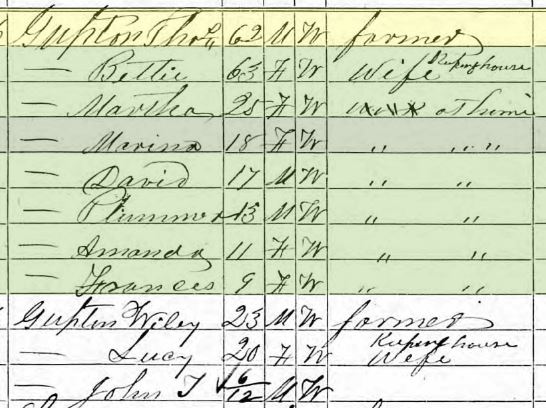 Gupton Thos 62 M W farmer
— Bettie 63 F W Wife Keping house
— Martha 25 F W at home
— Marina 18 F W " " "
— David 17 M W " "
— Plummer 15 M W " "
— Amanda 11 F W " "
— Frances 9 F W " "
Gupton Wiley 23 M W farmer
— Lucy 20 F W Keping house Wife
— John T 6/12 M W